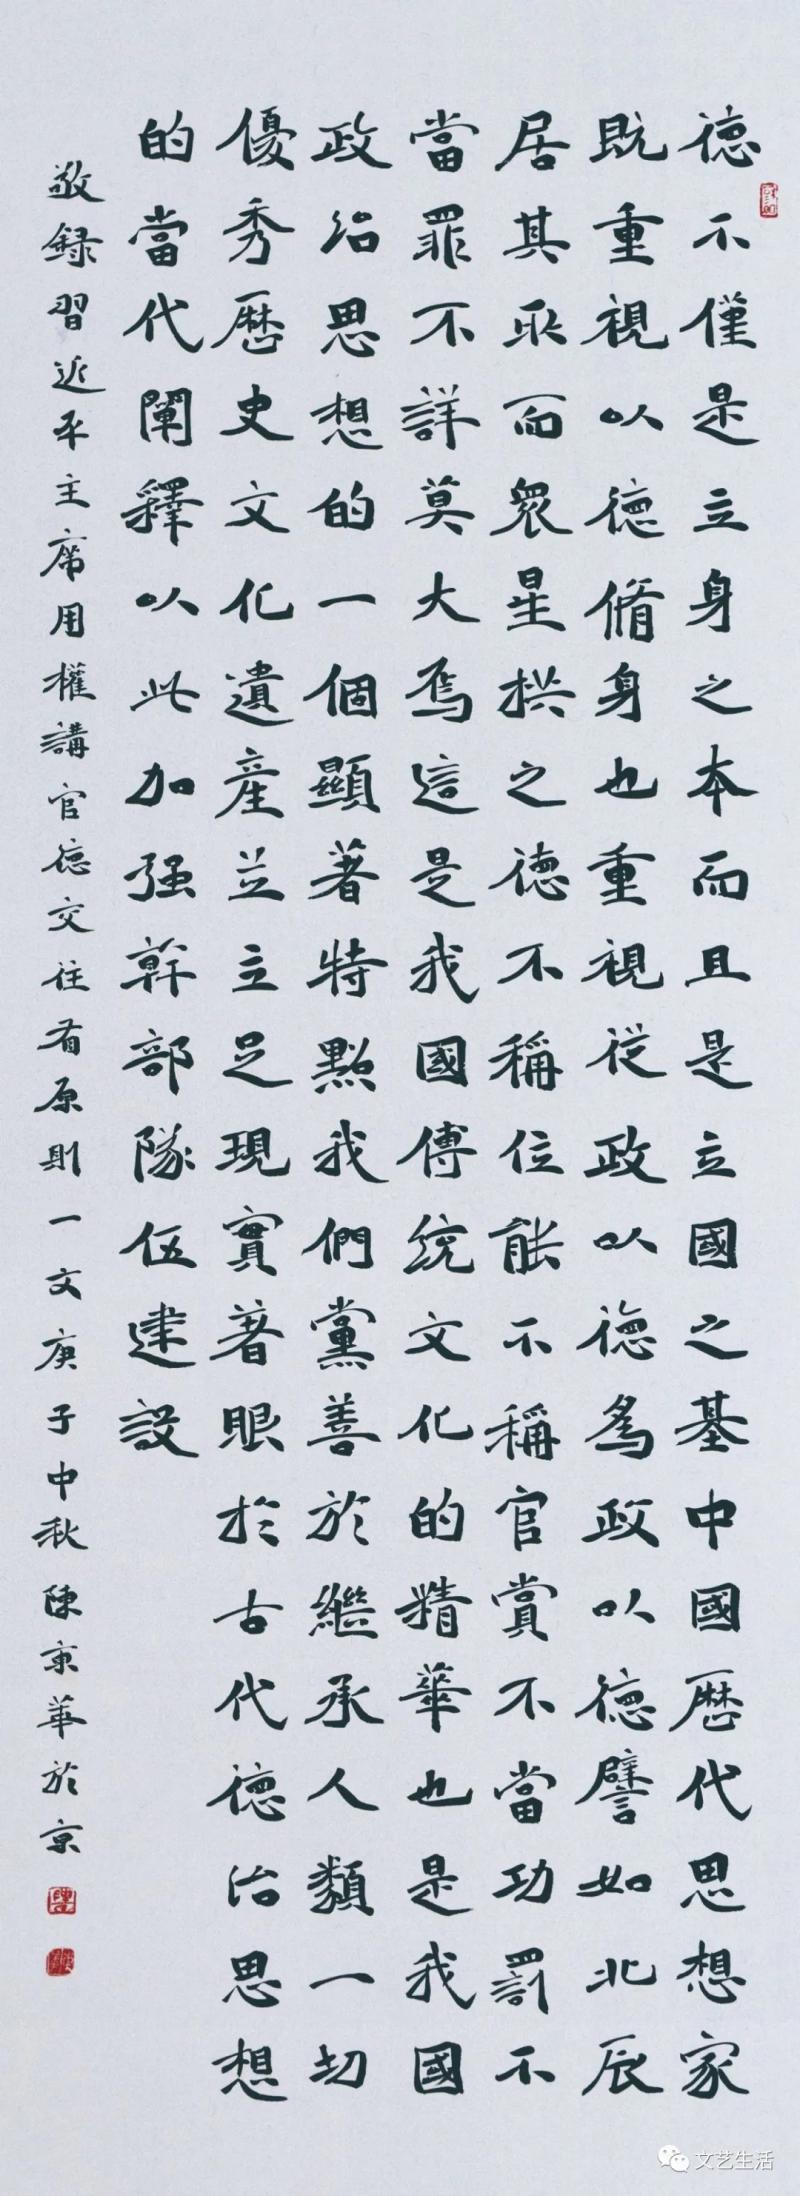 德不僅是立身之本而且是立國之基中國歷代思想家
既重視以德脩身也重視從政以德為政以德譬如北辰
居其所而眾星拱之德不稱位能不稱官賞不當功罰不
當罪不詳莫大焉這是我國傳統文化的精華也是我國
政治思想的一個顯著特點我們黨善於繼承人類一切
優秀歷史文化遺產並立足現實著眼於古代德治思想
的當代闡釋以此加强幹部隊伍建設
敬録習近平主席用權講官德交往有原則一文庚子中秋陳京華於京
文艺生活